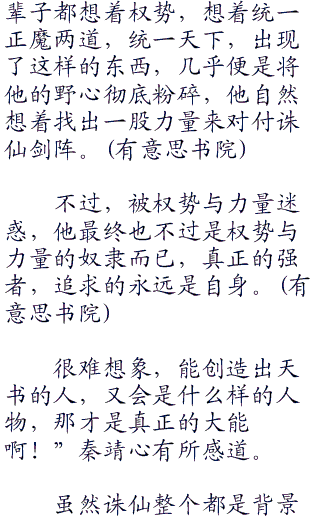 辈子都想着权势，想着统一
正魔两道，统一天下，出现
了这样的东西，几乎便是将
他的野心彻底粉碎，他自然
想着找出一股力量来对付诛
仙剑阵。(有意思书院)
不过，被权势与力量迷
惑，他最终也不过是权势与
力量的奴隶而已，真正的强
者，追求的永远是自身。(有
意思书院)
很难想象，能创造出天
书的人，又会是什么样的人
物，那才是真正的大能
啊！”秦靖心有所感道。
虽然诛仙整个都是背景